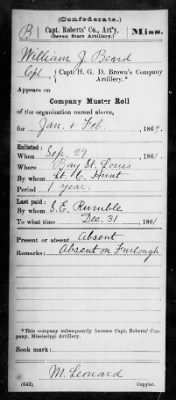 (Confederate.)
B Capt. Roberts' Co., Art'y. Miss.
(Seven Stars Artillery.)
William J Beard
Cpl., Capt. H. G. D. Brown's Company
Artillery.*
Appears on
Company Muster Roll
of the organization named above,
for Jan. & Feb., 1862.
Enlisted:
When Sep. 29, 1861
Where Bay St. Louis
By whom Lt. C. Hunt
Period 1 year.
Last paid:
By whom S.E. Rumble
To what time Dec. 31, 1861
Present or absent Absent
Remarks: Absent on Furlough
*This company subsequently became Capt. Roberts' Company, Mississippi Artillery.
Book mark:
M. Leonard
(642) Copyist.